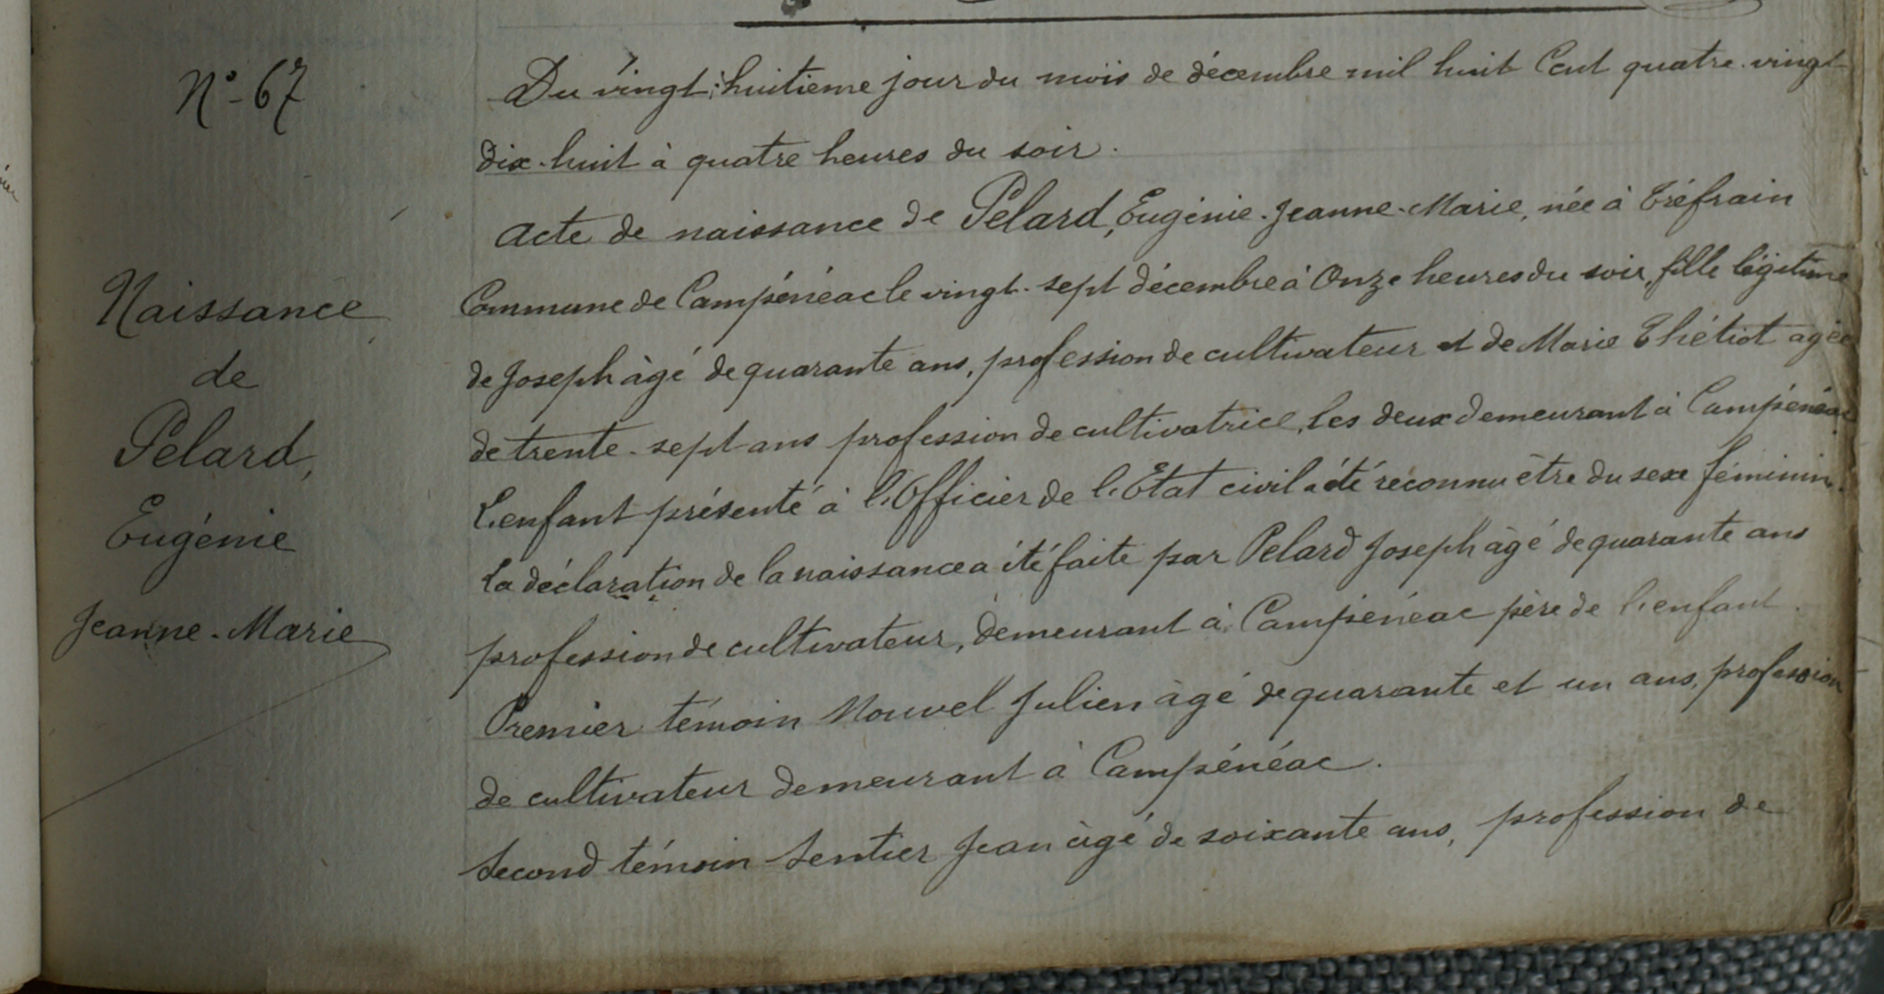 N° 67
Naissance
de
Pelard,
Eugénie
Jeanne-Marie
Du vingt-huitième jour du mois de décembre mil huit Cent quatre-vingt
dix-huit à quatre heures du soir.
Acte de naissance de Pelard, Eugénie-Jeanne-Marie, née à Tréfrain
Commune de Campénéac le vingt-sept décembre à Onze heures du soir, fille légitime
de Joseph âgé de quarante ans, profession de cultivateur et de Marie Thétiot agée
de trente-sept ans profession de cultivatrice, les deux demeurant à Campénéac
L'enfant présenté à l'Officier de l'Etat civil a été reconnu être du sexe féminin.
La déclaration de la naissance a été faite par Pelard Joseph âgé de quarante ans
profession de cultivateur, demeurant à Campénéac père de l'enfant.
Premier témoin Nouvel Julien âgé de quarante et un ans, profession
de cultivateur demeurant à Campénéac.
Second témoin Sentier Jean âgé de soixante ans, profession de